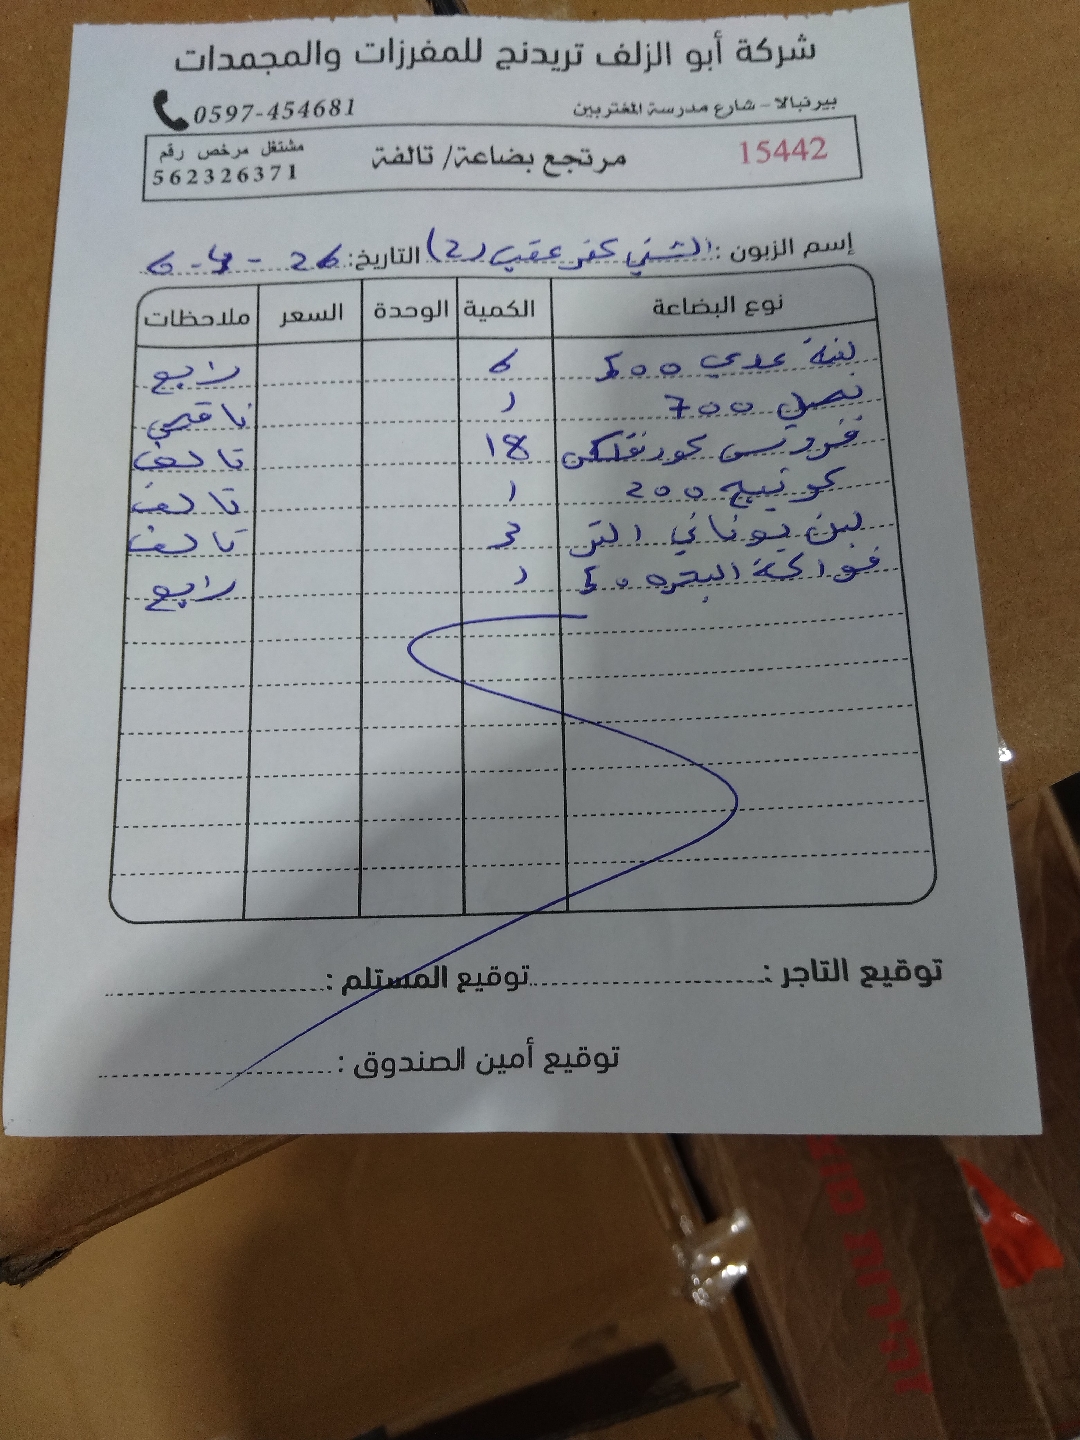 شركة أبو الزلف تريدنج للمفرزات والمجمدات
بيرنبالا - شارع مدرسة المغتربين 0597-454681
15442 مرتجع بضاعة/ تالفة مشتغل مرخص رقم 562326371
إسم الزبون: الشني كفر عقب (2) التاريخ: 26 - 4 - 6
نوع البضاعة الكمية الوحدة السعر ملاحظات
لبنة عدي 500 6 راجع
700 1 ناقص
فروس كورنفلكس 18 تالف
كوتيج 200 1 تالف
لبن يوناني التن 3 تالف
فواكة 1 راجع
توقيع التاجر: توقيع المستلم:
توقيع أمين الصندوق: